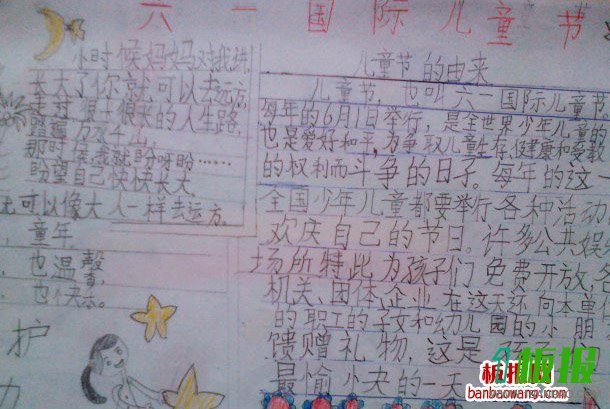 六一国际儿童节
小时候妈妈对我讲,
长大了你就可以去远方,
走过很长很长的人生路,
踏遍万水千山,
那时侯我就盼呀盼……
盼望自己快快长大,
可以像大人一样去远方.
童年,
也温馨
也
护
力
儿童节的由来
儿童节,也叫六一国际儿童节
每年的6月1日举行,是全世界少年儿童的
也是爱好和平,为争取儿童生存,健康和受教
的权利而斗争的日子。每年的这一
全国少年儿童都要举行各种活动
欢庆自己的节日。许多公共娱
场所特此为孩子们免费开放,
机关、团体、企业在这天还向本单
的职工的子女和幼儿园的小朋
馈赠礼物,这是
最愉快的一天
板报网
板报
banbaowang.com